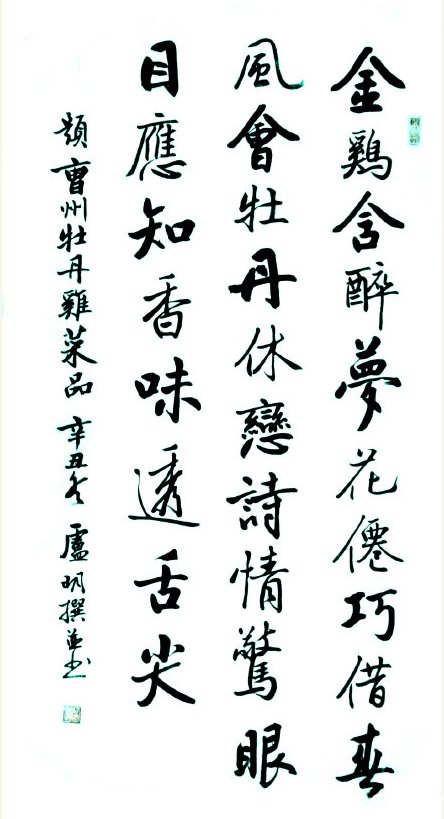 金鷄含醉夢花僊巧借春
風會牡丹休戀詩情驚眼
目應知香味透舌尖
題曹州牡丹雞菜品 辛丑冬 盧明撰並书